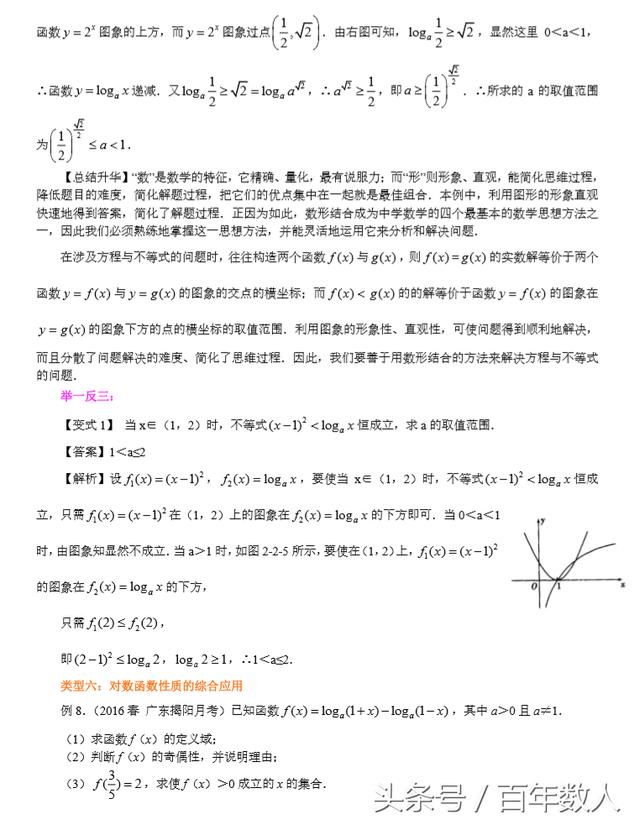 函数 y = 2^x 图象的上方，而 y = 2^x 图象过点 (1/2, √2)．由右图可知，log_a 1/2 ≥ √2，显然这里 0＜a＜1，
∴函数 y = log_a x 递减．又 log_a 1/2 ≥ √2 = log_a a^√2，∴ a^√2 ≥ 1/2，即 a ≥ (1/2)^(√2/2)．∴所求的 a 的取值范围
为 (1/2)^(√2/2) ≤ a < 1．
【总结升华】“数”是数学的特征，它精确、量化，最有说服力；而“形”则形象、直观，能简化思维过程，
降低题目的难度，简化解题过程，把它们的优点集中在一起就是最佳组合．本例中，利用图形的形象直观
快速地得到答案，简化了解题过程．正因为如此，数形结合成为中学数学的四个最基本的数学思想方法之
一，因此我们必须熟练地掌握这一思想方法，并能灵活地运用它来分析和解决问题．
在涉及方程与不等式的问题时，往往构造两个函数 f(x) 与 g(x)，则 f(x) = g(x) 的实数解等价于两个
函数 y = f(x) 与 y = g(x) 的图象的交点的横坐标；而 f(x) < g(x) 的的解等价于函数 y = f(x) 的图象在
y = g(x) 的图象下方的点的横坐标的取值范围．利用图象的形象性、直观性，可使问题得到顺利地解决，
而且分散了问题解决的难度、简化了思维过程．因此，我们要善于用数形结合的方法来解决方程与不等式
的问题．
举一反三：
【变式 1】 当 x∈（1，2）时，不等式 (x−1)^2 < log_a x 恒成立，求 a 的取值范围．
【答案】1＜a≤2
【解析】设 f₁(x) = (x−1)^2，f₂(x) = log_a x，要使当 x∈（1，2）时，不等式 (x−1)^2 < log_a x 恒成
立，只需 f₁(x) = (x−1)^2 在（1，2）上的图象在 f₂(x) = log_a x 的下方即可．当 0＜a＜1
时，由图象知显然不成立．当 a＞1 时，如图 2-2-5 所示，要使在(1, 2)上，f₁(x) = (x−1)^2
的图象在 f₂(x) = log_a x 的下方，
y
O 1 x
只需 f₁(2) ≤ f₂(2)，
即 (2−1)^2 ≤ log_a 2，log_a 2 ≥ 1，∴1＜a≤2．
类型六：对数函数性质的综合应用
例 8．（2016 春 广东揭阳月考）已知函数 f(x) = log_a(1+x) − log_a(1−x)，其中 a＞0 且 a≠1．
（1）求函数 f（x）的定义域；
（2）判断 f（x）的奇偶性，并说明理由；
（3） f(3/5) = 2，求使 f（x）＞0 成立的 x 的集合．
头条号／百年数人